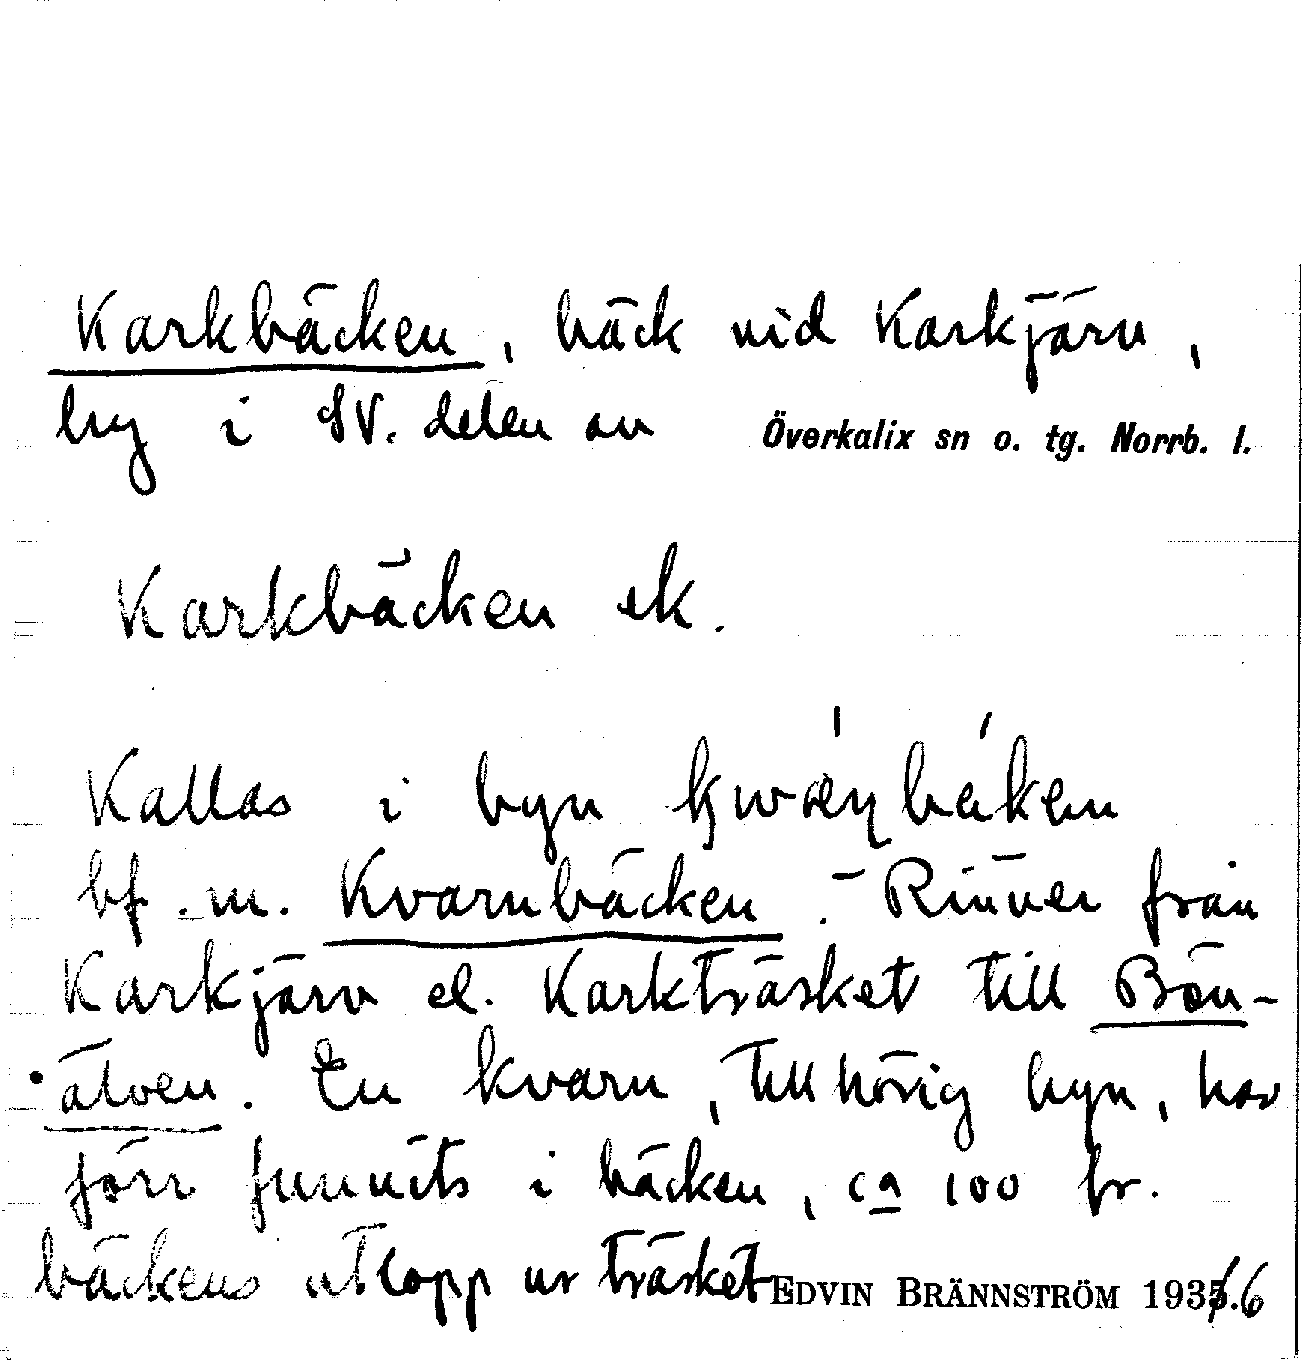 Karkbäcken, bäck vid Karkjärv,
by i SV. delen av Överkalix sn o. tg. Norrb. l.
Karkbäcken ek.
Kallas i byn
bf. m. Kvarnbäcken. – Rinner från
Karkjärv el. Karkträsket till Bön-
älven. En kvarn, tillhörig byn, har
förr funnits i bäcken, ca 100 fr.
bäckens utlopp ur träsket EDVIN BRÄNNSTRÖM 1936